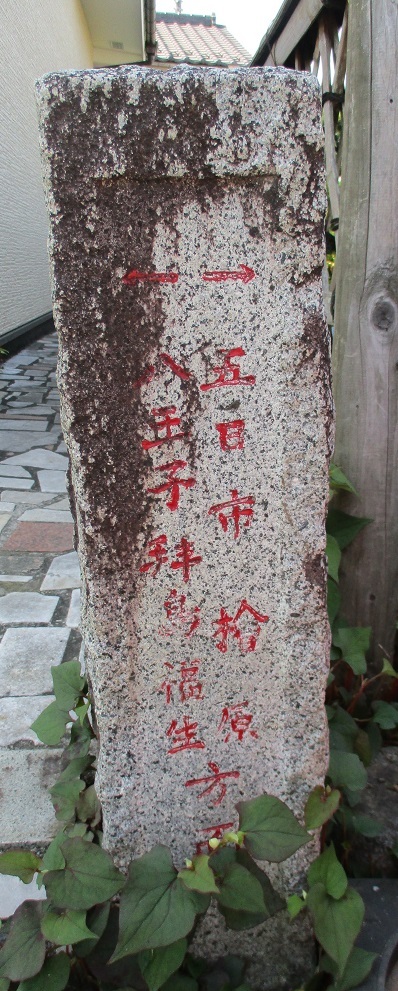 →五日市桧原
←八王子拝島福生
方面